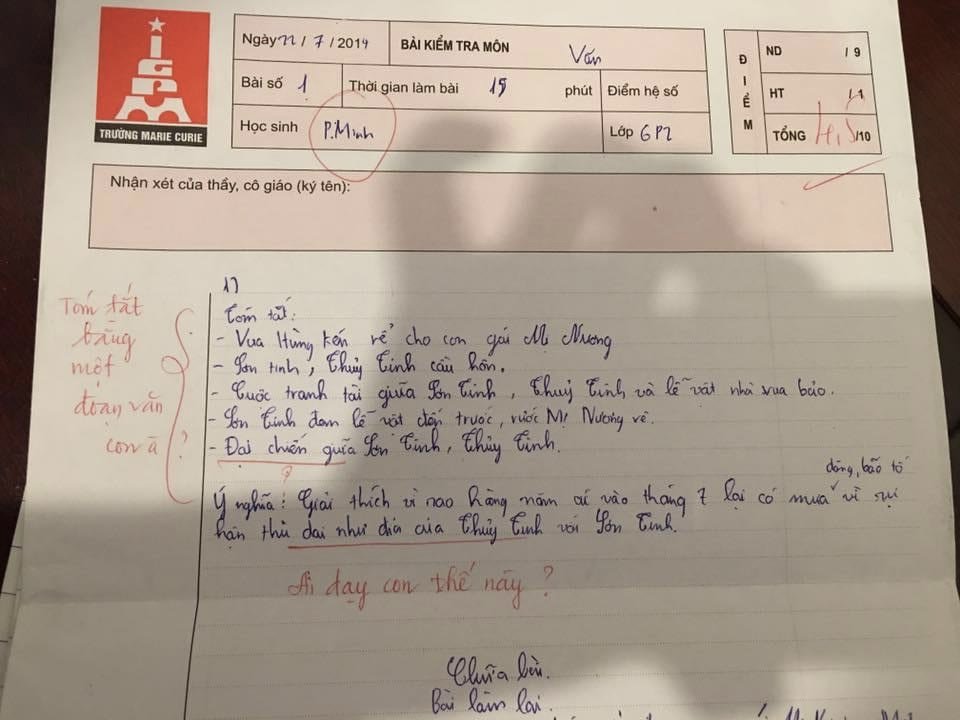 IGPM
TRƯỜNG MARIE CURIE
Ngày 22 / 7 / 2014
BÀI KIỂM TRA MÔN Văn
Bài số 1
Thời gian làm bài 15 phút
Điểm hệ số
Học sinh P.Minh
Lớp 6P2
ĐIỂM
ND /9
HT /1
TỔNG 4,5/10
Nhận xét của thầy, cô giáo (ký tên):
Tóm tắt
bằng
một
đoạn văn
con ạ ?
1)
Tóm tắt:
- Vua Hùng kén rể cho con gái Mị Nương
- Sơn tinh, Thủy Tinh cầu hôn.
- Cuộc tranh tài giữa Sơn Tinh, Thuỷ Tinh và lễ vât nhà vua bảo.
- Sơn Tinh đem lễ vật đến trước, rước Mị Nương về.
- Đại chiến giữa Sơn Tinh, Thủy Tinh.
?
dông, bão tố
Ý nghĩa: Giải thích vì sao hằng năm cứ vào tháng 7 lại có mưa vì sự
hận thù dai như đỉa của Thủy Tinh với Sơn Tinh.
Ai dạy con thế này ?
Chữa bài.
Bài làm lại.